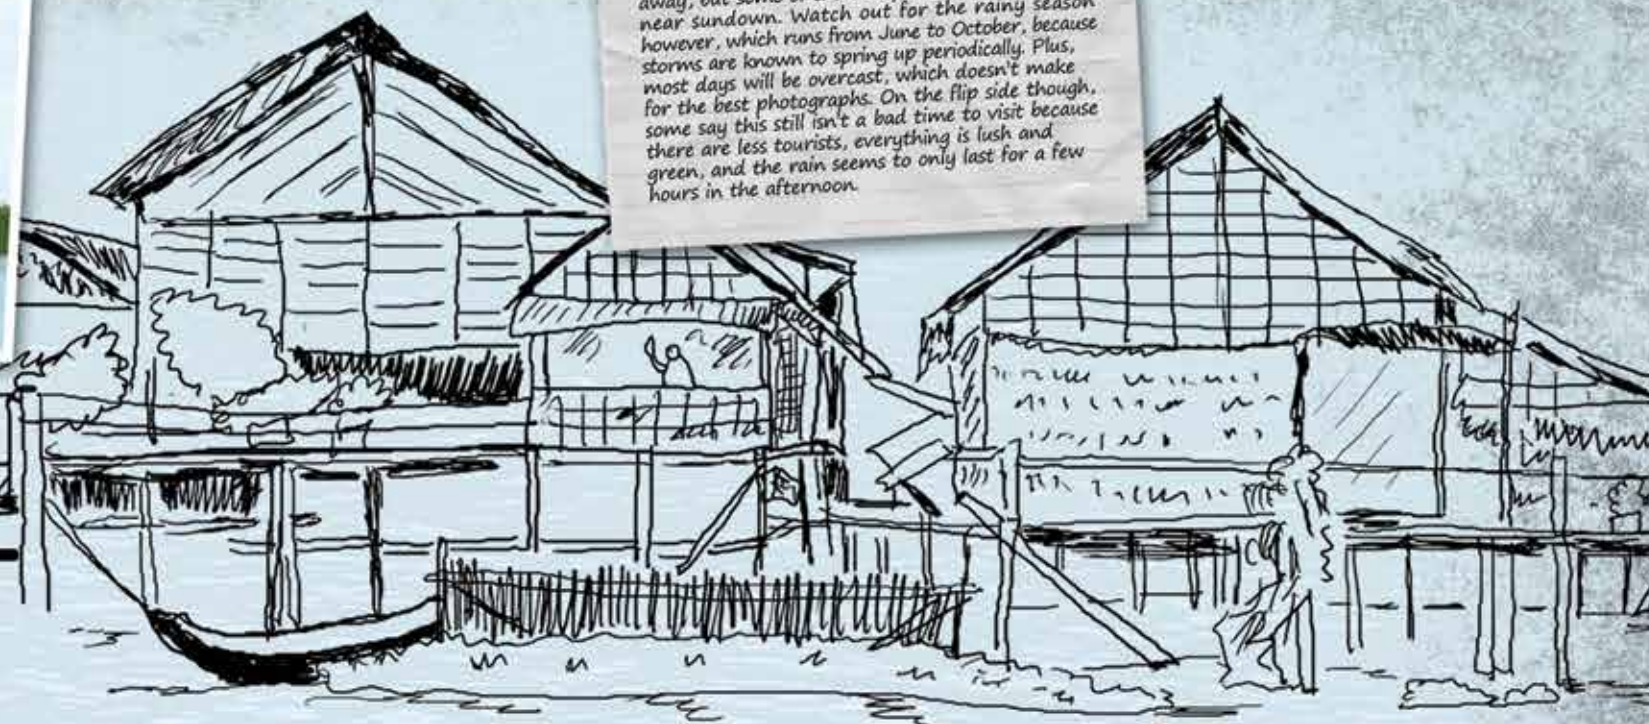 near sundown. Watch out for the rainy season
however, which runs from June to October, because
storms are known to spring up periodically. Plus,
most days will be overcast, which doesn't make
for the best photographs. On the flip side though,
some say this still isn't a bad time to visit because
there are less tourists, everything is lush and
green, and the rain seems to only last for a few
hours in the afternoon.